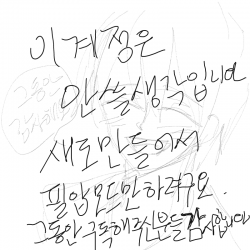 이계정은
안쓸생각입니다
새로만들어서
필압모드만하려구요.
그동안구독해주신분들감사합니다
그동안
감사해요